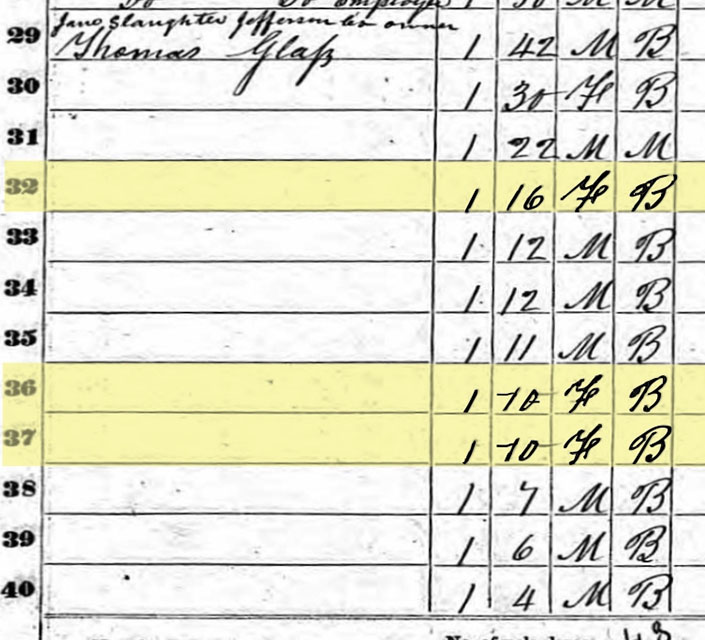 Do Do employer 1 30 M M
Jane Slaughter Jefferson Co owner
29 Thomas Glaß 1 42 M B
30 1 30 F B
31 1 22 M M
32 1 16 F B
33 1 12 M B
34 1 12 M B
35 1 11 M B
36 1 10 F B
37 1 10 F B
38 1 7 M B
39 1 6 M B
40 1 4 M B